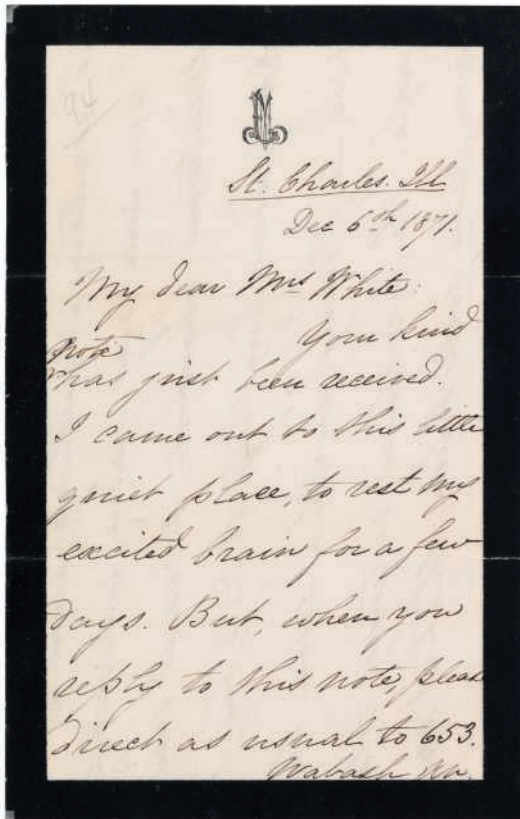 94
St. Charles. Ill
Dec 6th 1871.
My dear Mrs White:
Your kind
note
has just been received.
I came out to this little
quiet place, to rest my
excited brain for a few
days. But, when you
reply to this note, please
direct as usual to 653.
Wabash Av.